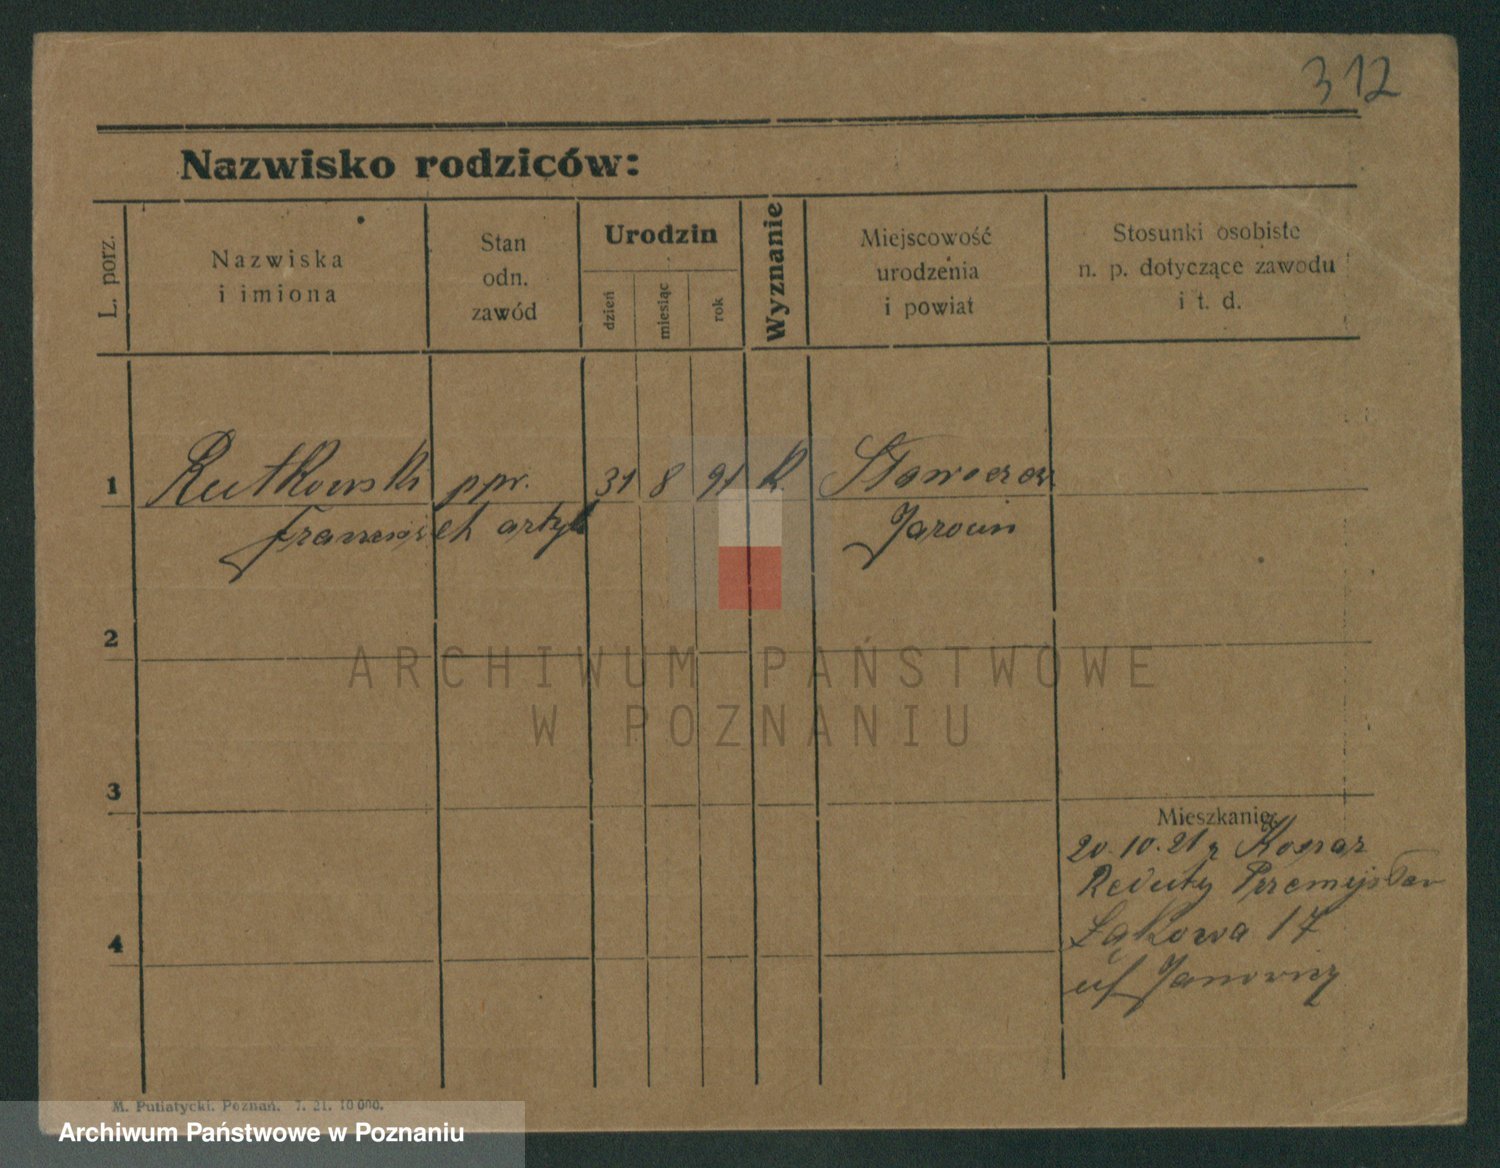 312
Nazwisko rodziców:
L. porz.
Nazwiska
i imiona
Stan
odn.
zawód
Urodzin
dzień
miesiąc
rok
Wyznanie
Miejscowość
urodzenia
i powiat
Stosunki osobiste
n. p. dotyczące zawodu
i t. d.
1
Rutkowski ppr. 31 8 91 k
Franciszek artyl Jarocin
2
ARCHIWUM PAŃSTWOWE
W POZNANIU
3
Mieszkanie
20.10.21 z Koszar
Reduty Przemysław
4
Łąkowa 17
uf
M. Putiatycki. Poznań. 7. 21. 10 000.
Archiwum Państwowe w Poznaniu